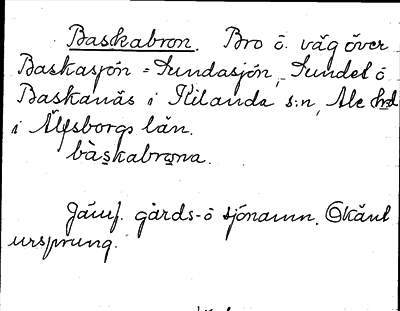 Baskabron. Bro ö. väg över
Baskasjön = Sundasjön, Sundet ö
Baskanäs i Kilanda s:n, Ale hd
i Älfsborgs län.
båskabrona.
Jämf. gårds- o sjönamn. Okänt
ursprung.